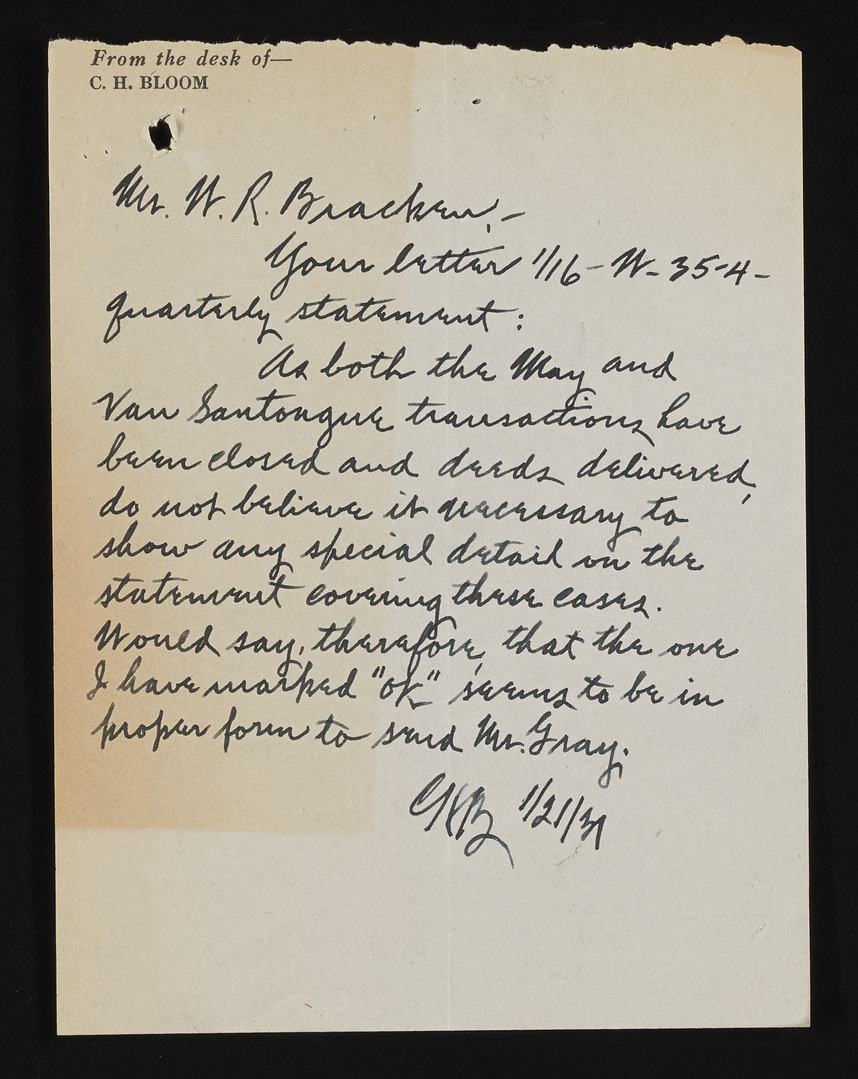 From the desk of—
C. H. BLOOM
Mr. W. R. Bracken,—
Your letter 1/16 - W-35-4-
quarterly statement:
As both the May and
Van Santongue transactions have
been closed and deeds delivered,
do not believe it necessary to
show any special detail on the
statement covering these cases.
Would say, therefore, that the one
I have marked "OK" seems to be in
proper form to send Mr. Gray.
CHB 1/21/31